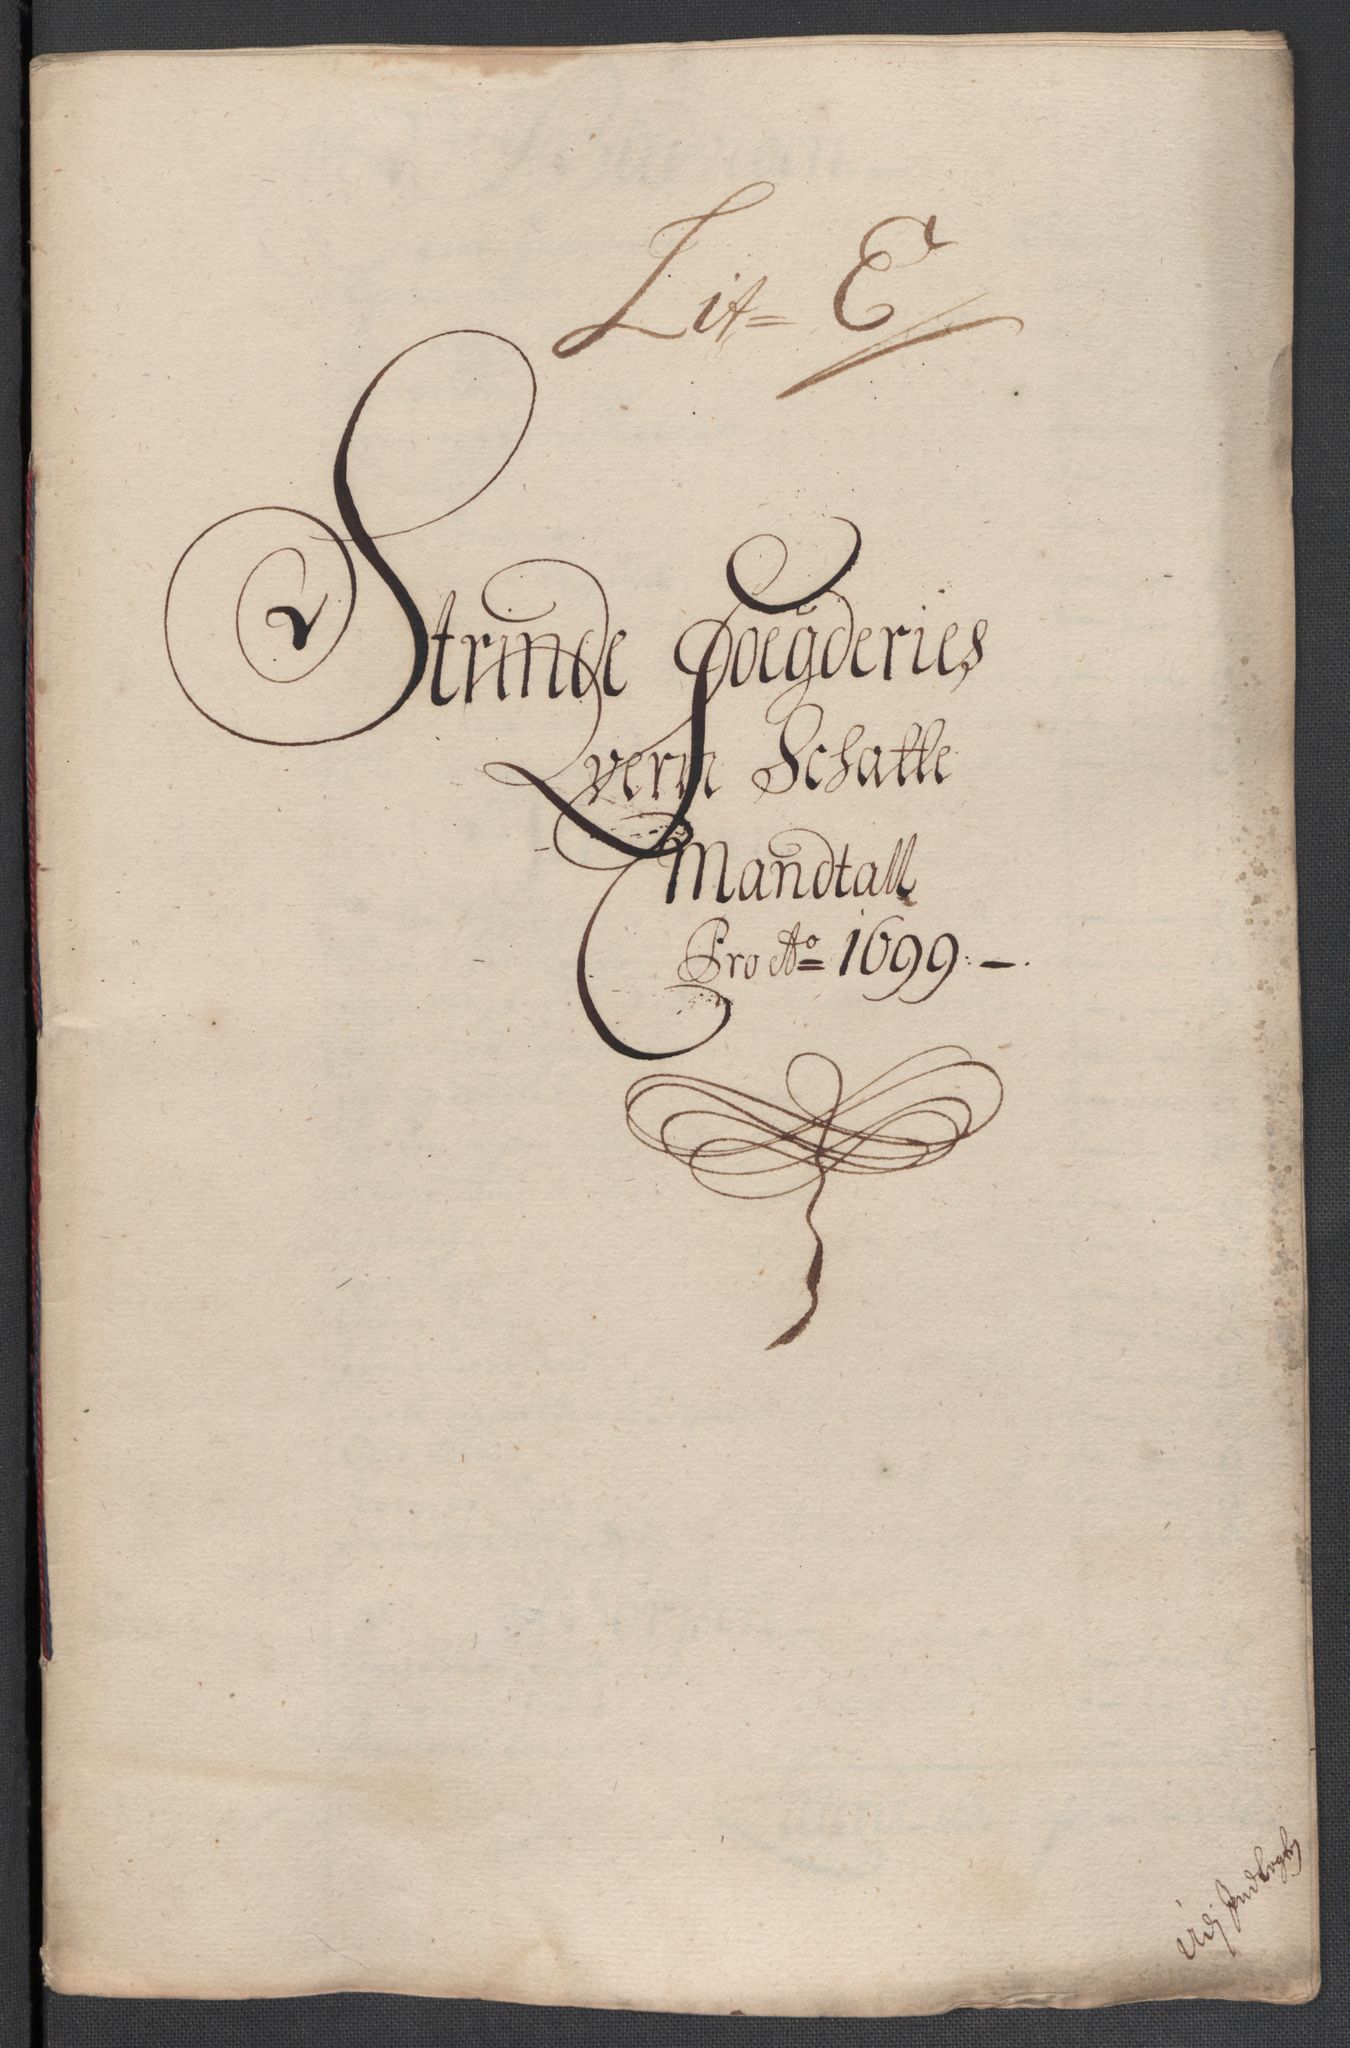 Lit= E
Strinde Foegderies
qvern Schatte
Mandtall
Pro Ao= 1699. —.